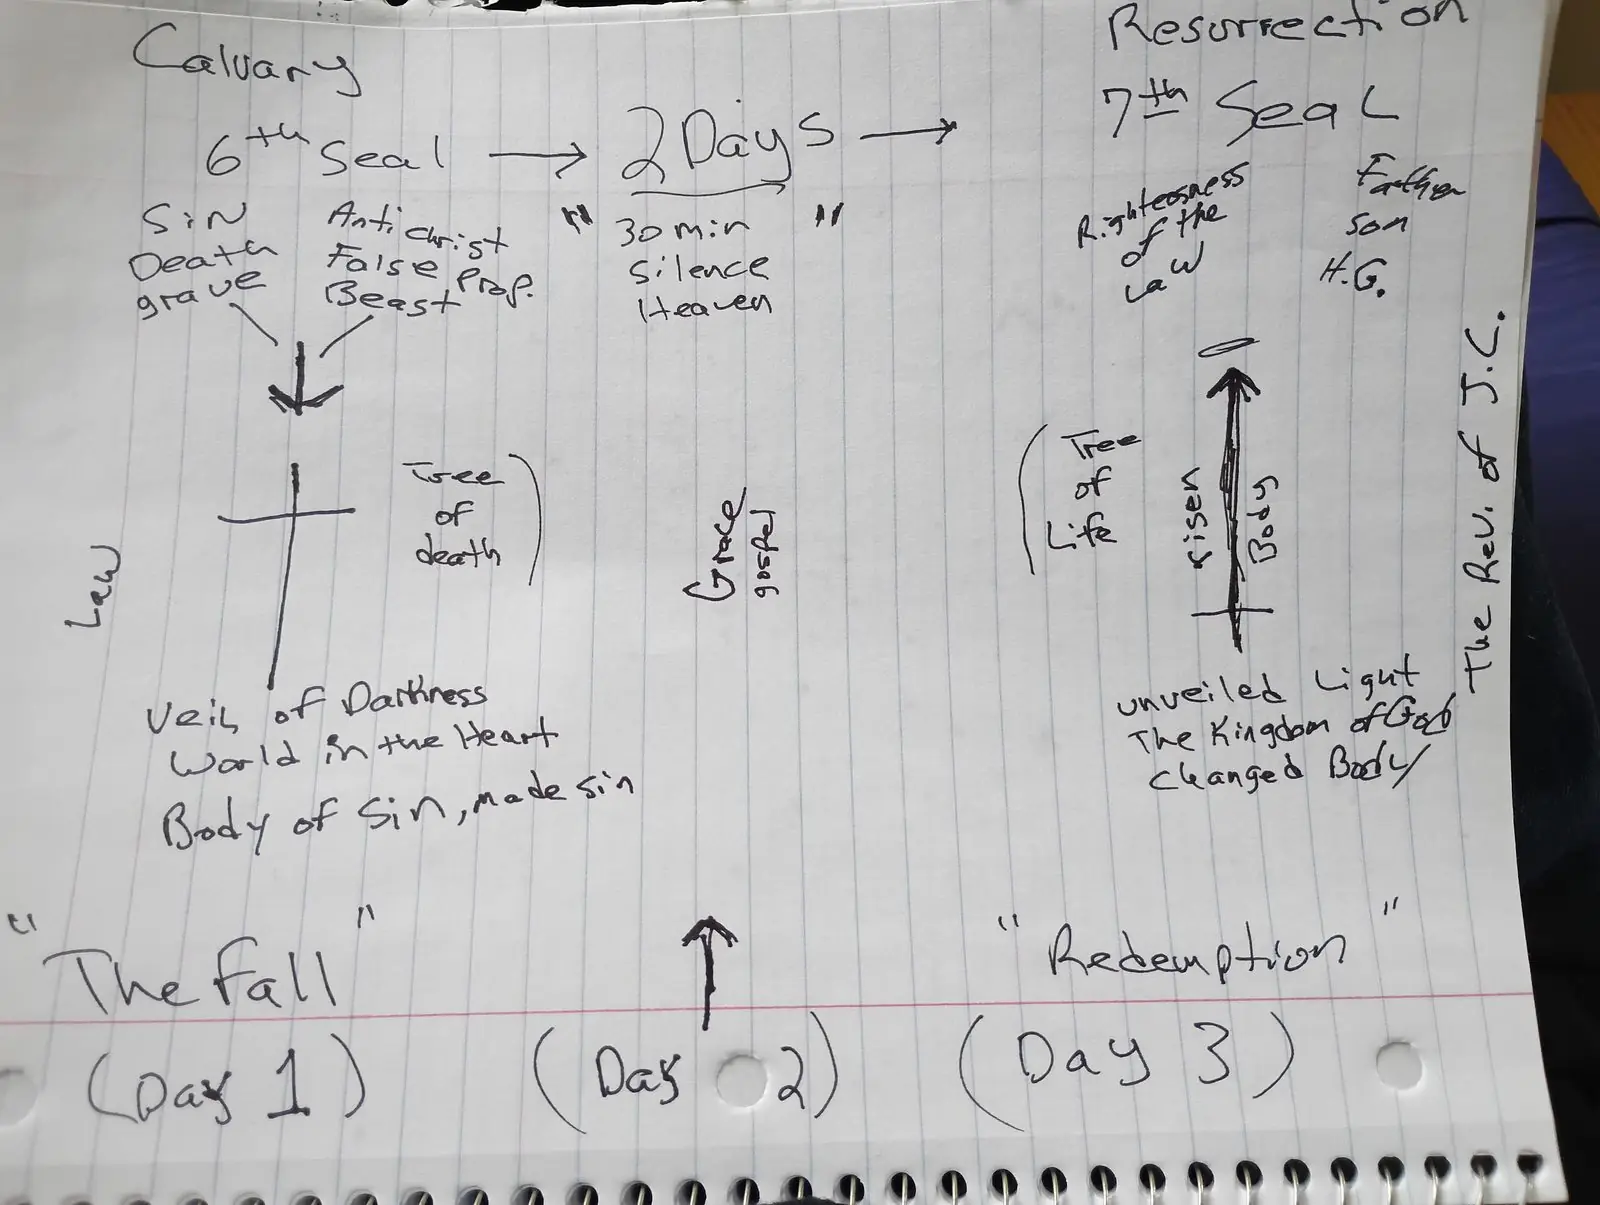 Calvary
6th Seal →
Sin
Death
grave
Anti christ
False Prop.
Beast
2 Days →
" 30 min "
Silence
Heaven
Resurrection
7th Seal
Righteosness
of the
Law
Father
Son
H.G.
Law
Tree
of
death
Grace
gospel
Tree
of
Life
risen
Body
The Rev. of J.C.
Veil of Darkness
World in the Heart
Body of Sin, made sin
unveiled Light
The Kingdom of God
changed Body
"The Fall"
(Day 1)
(Day 2)
"Redemption"
(Day 3)